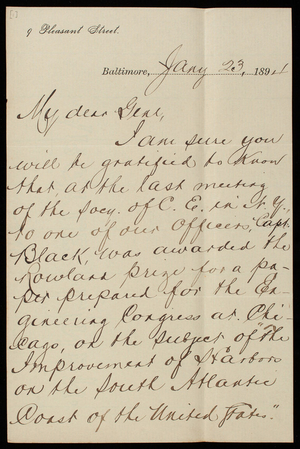 9 Pleasant Street.
Baltimore, Jany 23, 1894
My dear Genl,
I am sure you
will be gratified to know
that, at the last meeting
of the Socy. of C. E. in N. Y.,
to one of our Officers, Capt.
Black, was awarded the
Rowland prize for a pa-
per prepared for the En-
gineering Congress at Chi-
cago, on the subject of "The
Improvement of Harbors
on the South Atlantic
Coast of the United States."